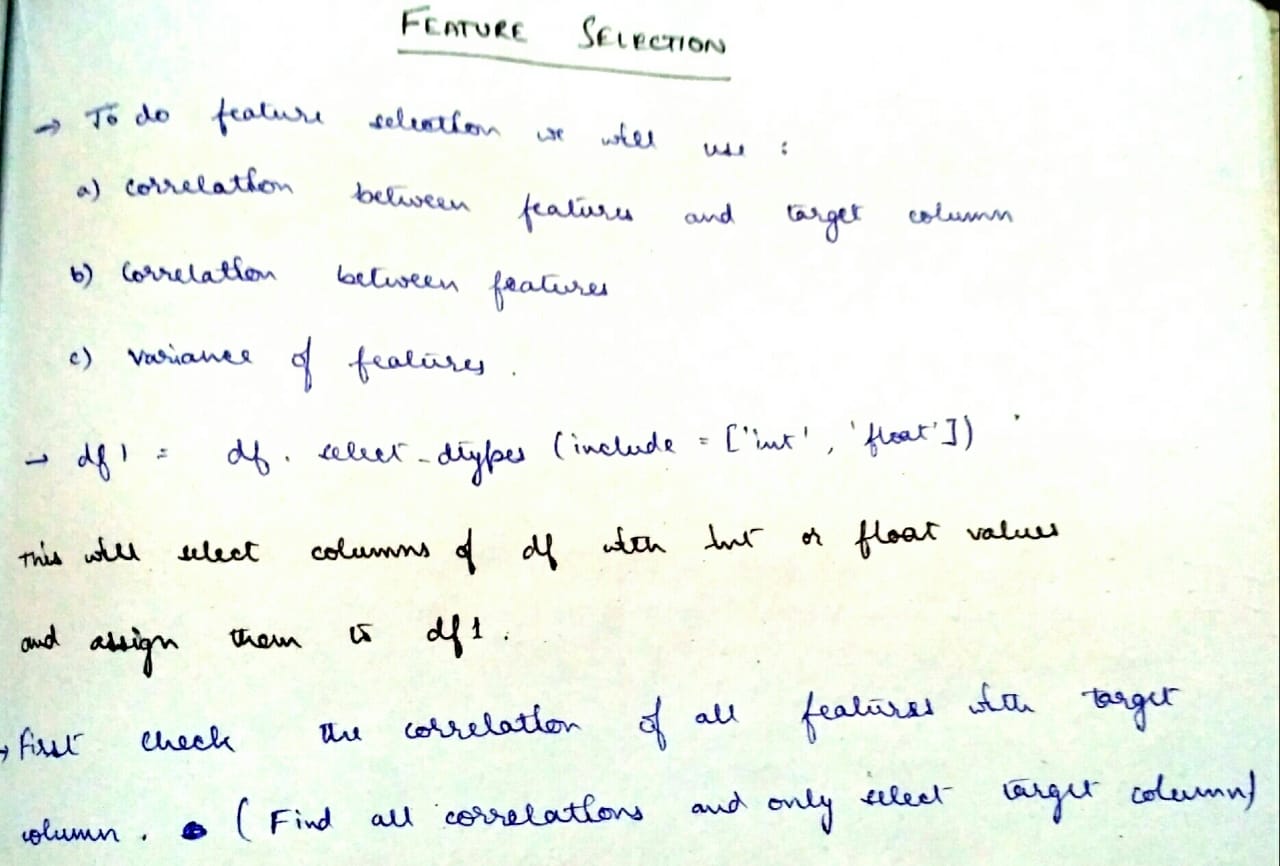 FEATURE SELECTION
→ To do feature selection we will use :
a) correlation between features and target column
b) Correlation between features
c) variance of features .
→ df1 = df . select_dtypes (include = ['int' , 'float'])
This will select columns of df with Int or float values
and assign them to df1 .
→ first check the correlation of all features with target
column . ( Find all correlations and only select target column)